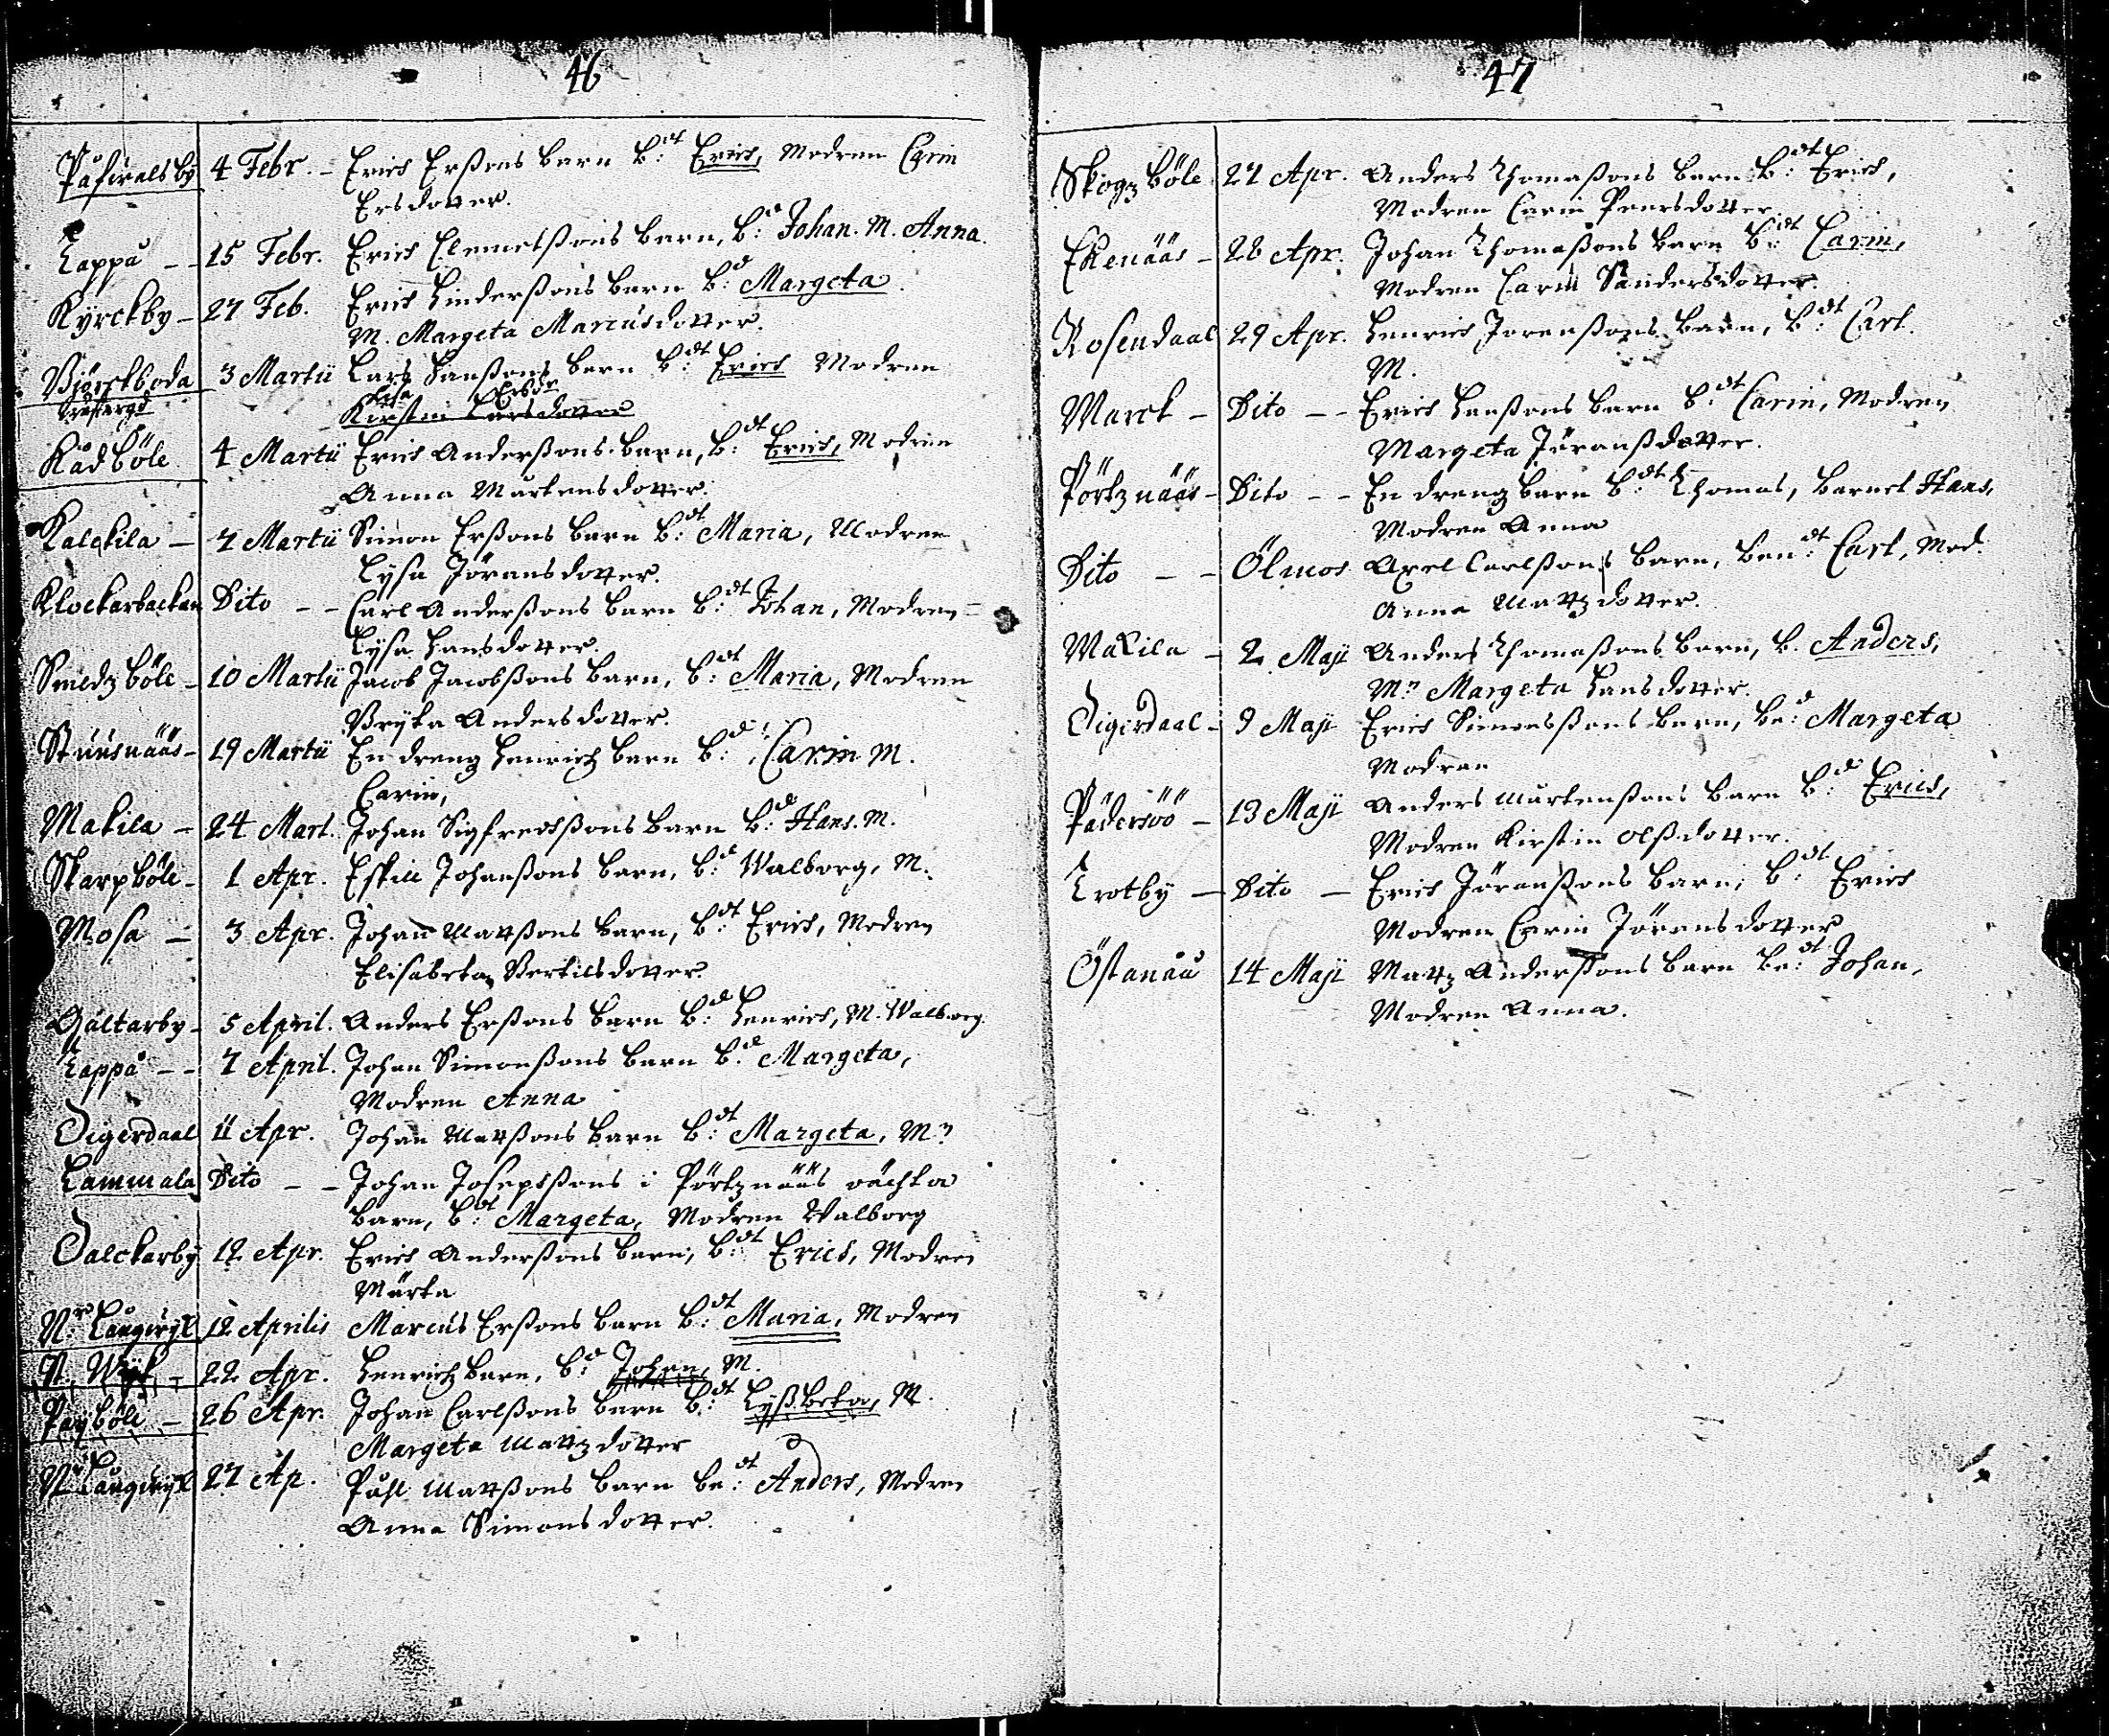 46
Påfvalsby 4 Febr. – Erics Erßons barn b:dt Erics, Modren Carin
Ersdotter.
Lappå – – 15 Febr. Erics Clemetßons barn, b:d Johan. M. Anna.
Kyrckby – 27 Feb. Erics Hinderßons barn b:d Margeta.
M. Margeta Marcusdotter.
Björckboda 3 Martii Lars Hanßons barn b:dt Erics Modren
Lisa Ersdr
Kirstin Larsdotter
Kådböle 4 Martii Erics Anderßons barn, b:dt Erics, Modren
Anna Mårtensdotter.
Kalckila – 7 Martii Simon Erßons barn b:dt Maria, Modren
Lysa Jöransdotter.
Klockarbackan Dito – – Carl Anderßons barn b:dt Johan, Modren
Lysa Hansdotter.
Smedzböle – 10 Martii Jacob Jacobßons barn, b:dt Maria, Modren
Bryta Andersdotter.
Stuusnääs – 19 Martii En dreng Henrichz barn b:d Carin M.
Carin,
Makila – 24 Mart. Johan Sigfredßons barn b:d Hans. M.
Skarpböle – 1 Apr. Eskill Johanßons barn, b:d Walborg, M.
Mosa – 3 Apr. Johan Matßons barn, b:dt Erics, Modren
Elisabeta Bertilsdotter.
Galtarby – 5 April. Anders Erßons barn b:d Henrics, M. Walborg.
Lappå – – 7 April. Johan Simonßons barn b:d Margeta,
Modren Anna
Digerdaal 11 Apr. Johan Matßons barn b:dt Margeta, Mn
Lammala Dito – – Johan Josepßons i Pörtznääs oächta
barn, b:dt Margeta, Modren Walborg
Dalckarby 12 Apr. Erics Anderßons barn, b:dt Erics, Modren
Märta
Nr: Långwyk 12 Aprilis Marcus Erßons barn b:dt Maria, Modren
N. Wyk – 22 Apr. Henrichz barn, b:d Johan, M.
Payböle – 26 Apr. Johan Carlßons barn b:dt Lyßbeta, M.
Margeta Matzdotter
Nr Långwyk 27 Ap. Påhl Matßons barn be:dt Anders, Modren
Anna Simonsdotter.
47
Skogzböle 27 Apr. Anders Thomaßons barn b:dt Erics,
Modren Carin Peersdotter
Ekenääs – 28 Apr. Johan Thomaßons barn b:dt Carin,
Modren Carin Sandersdotter.
Rosendaal 29 Apr. Henrics Joranßons barn, b:dt Carl.
M.
Marck – Dito – – Erics Hanßons barn b:dt Carin, Modren
Margeta Jöranßdotter.
Pörtznääs – Dito – – En dreng barn b:dt Thomas, barnet Hans,
Modren Anna
Dito – – Ölmos Axel Carlßons barn, ben:dt Carl, Mod.
Anna Matzdotter.
Makila – 2 Maji Anders Thomaßons barn, b. Anders,
Mn Margeta Hansdotter.
Digerdaal – 9 Maji Erics Simonßons barn, be:d Margeta
Modren
Pädersöö – 13 Maji Anders Mårtenßons barn b:d Erics,
Modren Kirstin Olßdotter.
Trotby – Dito – Erics Jöranßons barn, b:dt Erics
Modren Carin Jöransdotter
Östanåå 14 Maji Matz Anderßons barn be:dt Johan,
Modren Anna.